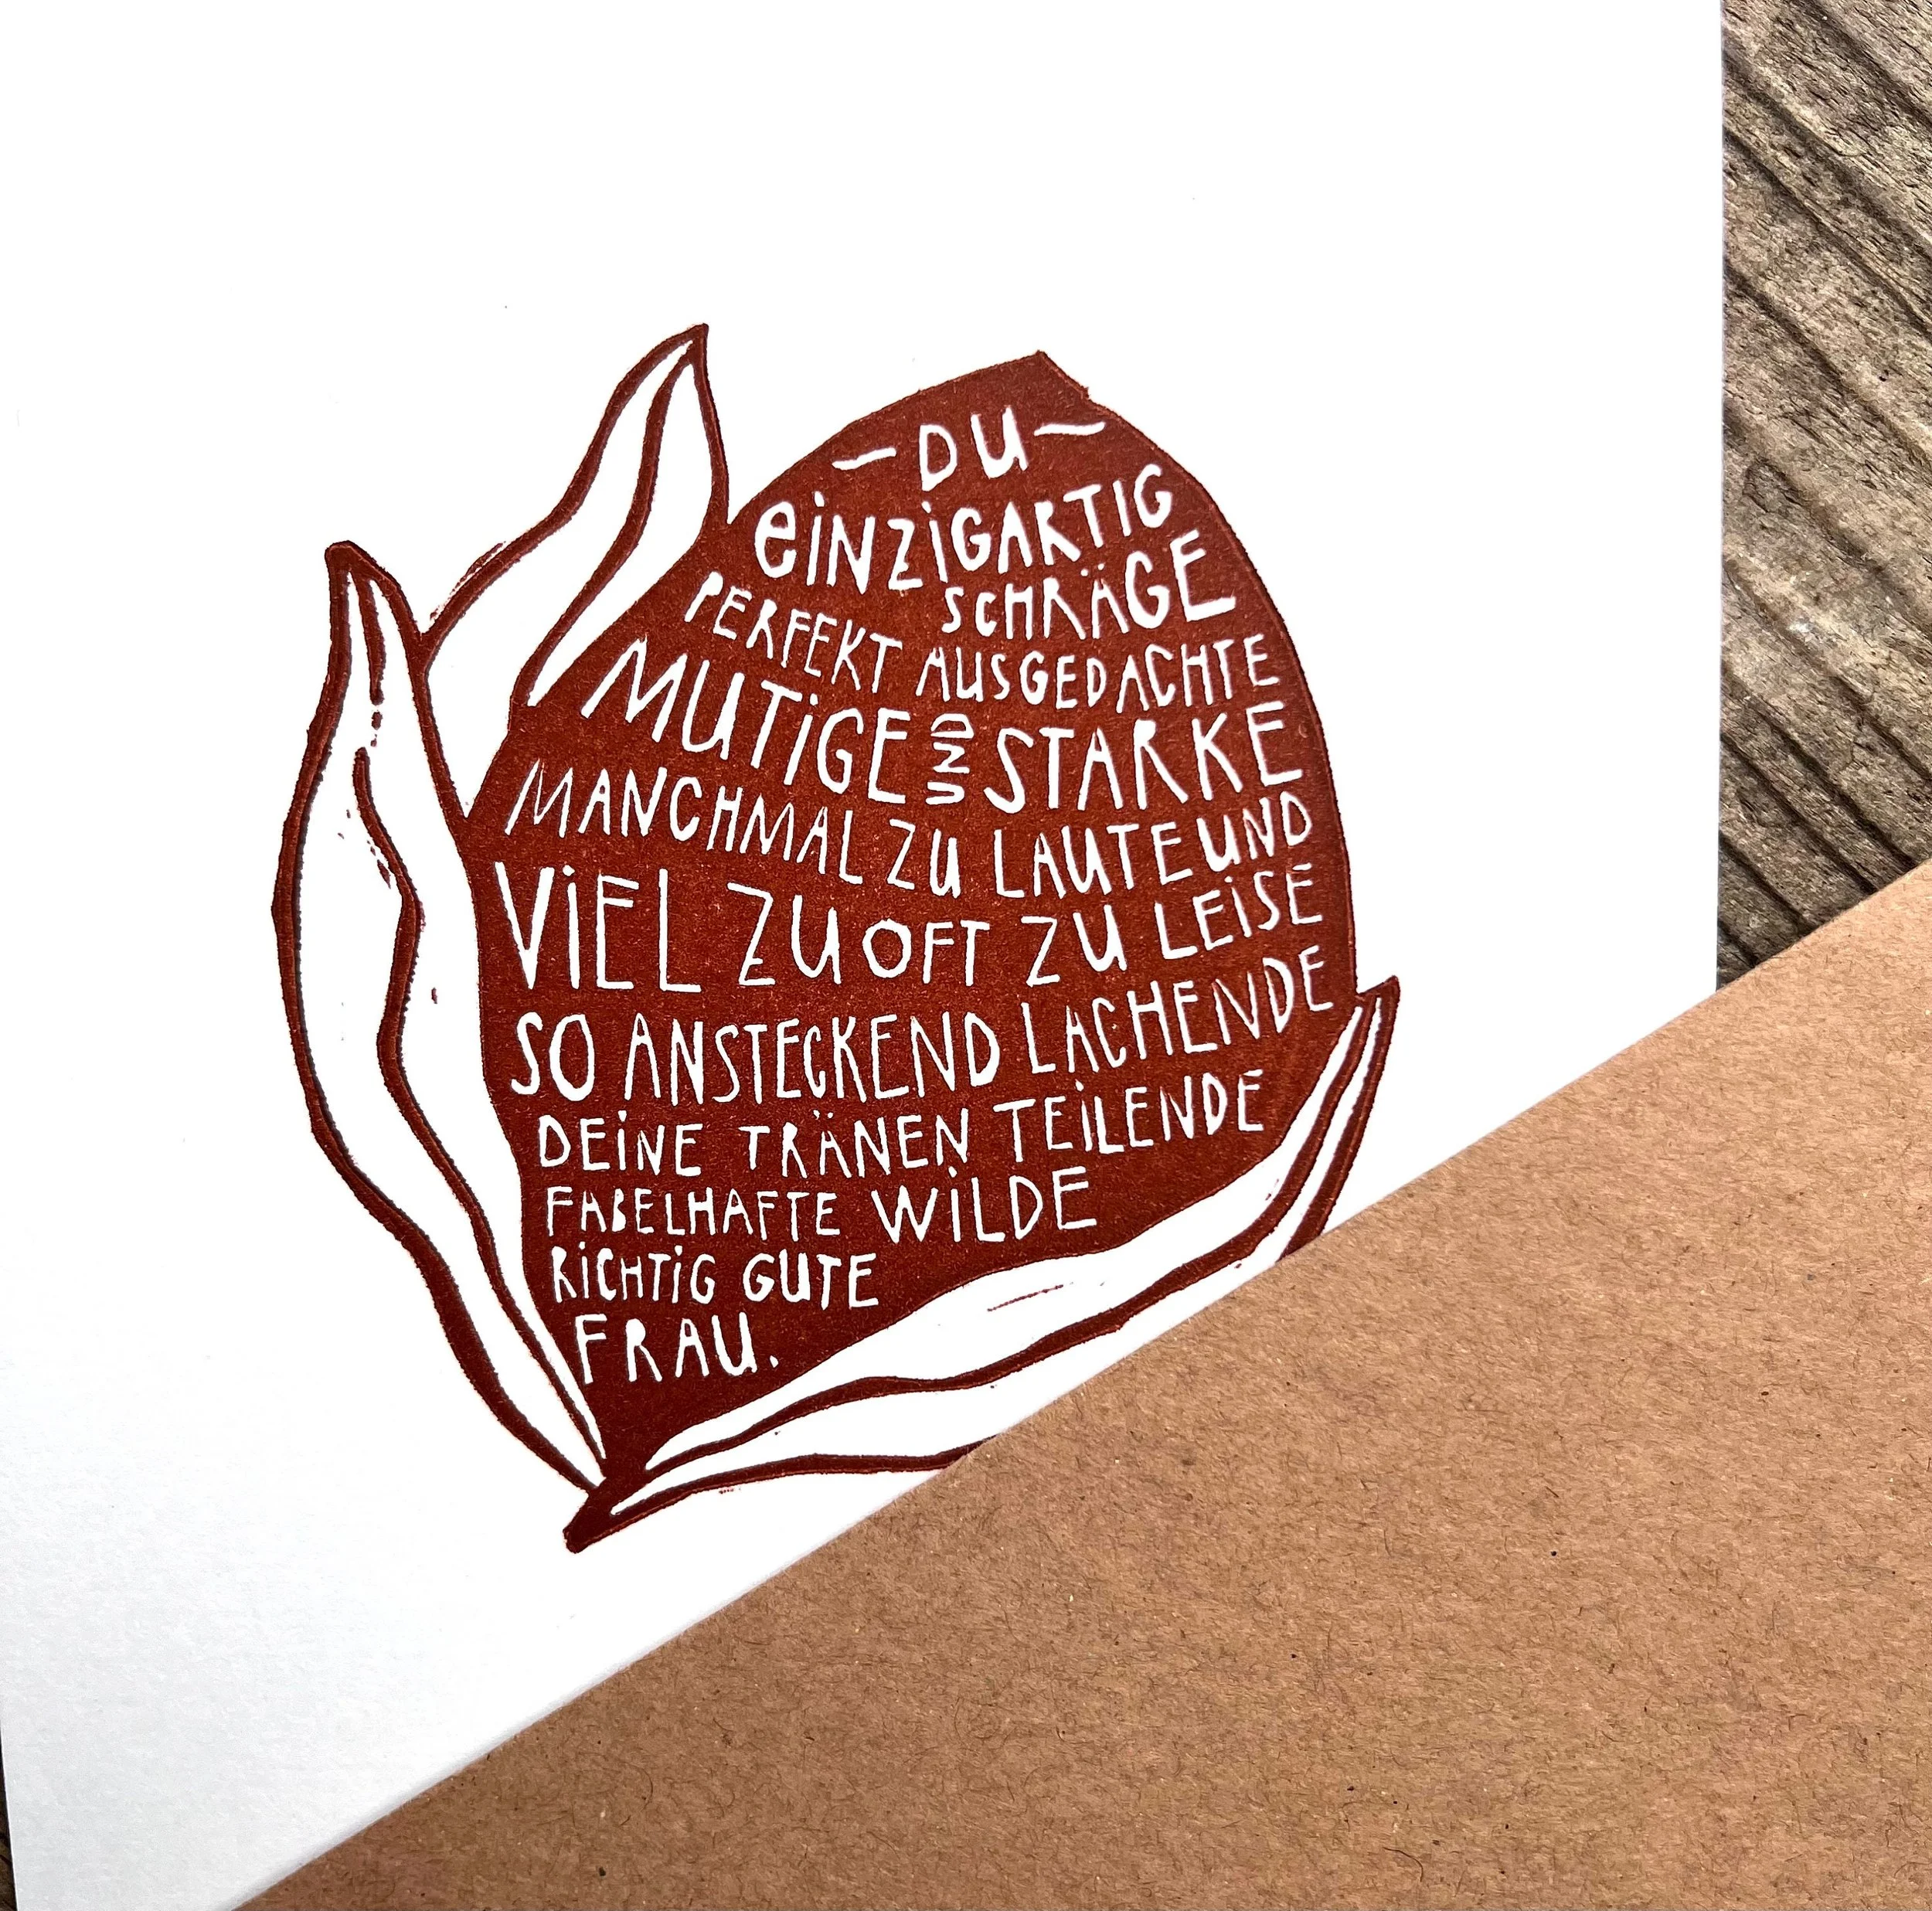 – DU –
EINZIGARTIG
SCHRÄGE
PERFEKT AUSGEDACHTE
MUTIGE UND STARKE
MANCHMAL ZU LAUTE UND
VIEL ZU OFT ZU LEISE
SO ANSTECKEND LACHENDE
DEINE TRÄNEN TEILENDE
FABELHAFTE WILDE
RICHTIG GUTE
FRAU.